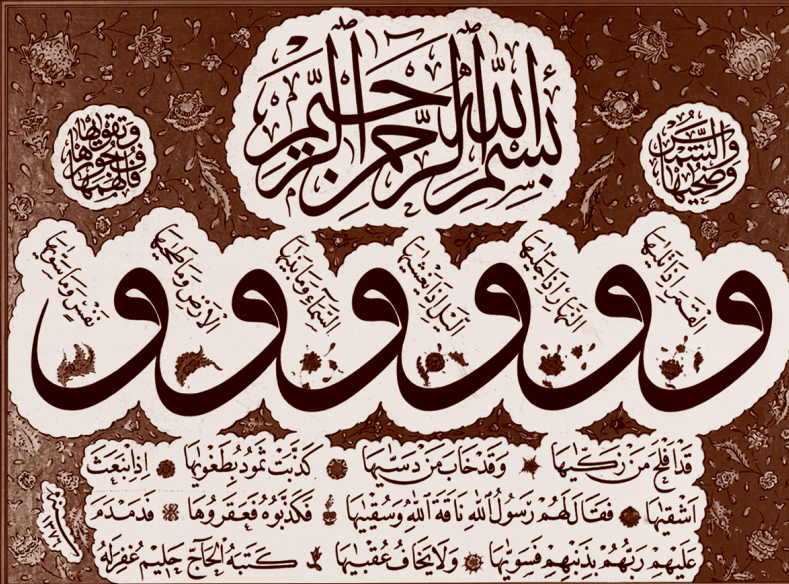 بِسْمِ اللهِ الرَّحْمٰنِ الرَّحِيمِ
وَالشَّمْسِ وَضُحٰيهَا
و الْقَمَرِ اِذَا تَلٰيهَا
و النَّهَارِ اِذَا جَلّٰيهَا
و الَّيْلِ اِذَا يَغْشٰيهَا
و السَّمَآءِ وَمَا بَنٰيهَا
و الْاَرْضِ وَمَا طَحٰيهَا
و نَفْسٍ وَمَا سَوّٰيهَا
فَاَلْهَمَهَا فُجُورَهَا وَتَقْوٰيهَا
قَدْ اَفْلَحَ مَنْ زَكّٰيهَا وَقَدْ خَابَ مَنْ دَسّٰيهَا كَذَّبَتْ ثَمُودُ بِطَغْوٰيهَا اِذِ انْبَعَثَ
اَشْقٰيهَا فَقَالَ لَهُمْ رَسُولُ اللهِ نَاقَةَ اللهِ وَسُقْيٰيهَا فَكَذَّبُوهُ فَعَقَرُوهَا فَدَمْدَمَ
عَلَيْهِمْ رَبُّهُمْ بِذَنْبِهِمْ فَسَوّٰيهَا وَلَا يَخَافُ عُقْبٰيهَا كَتَبَهُ الْحَاجّ حَلِيم غُفِرَلَهُ